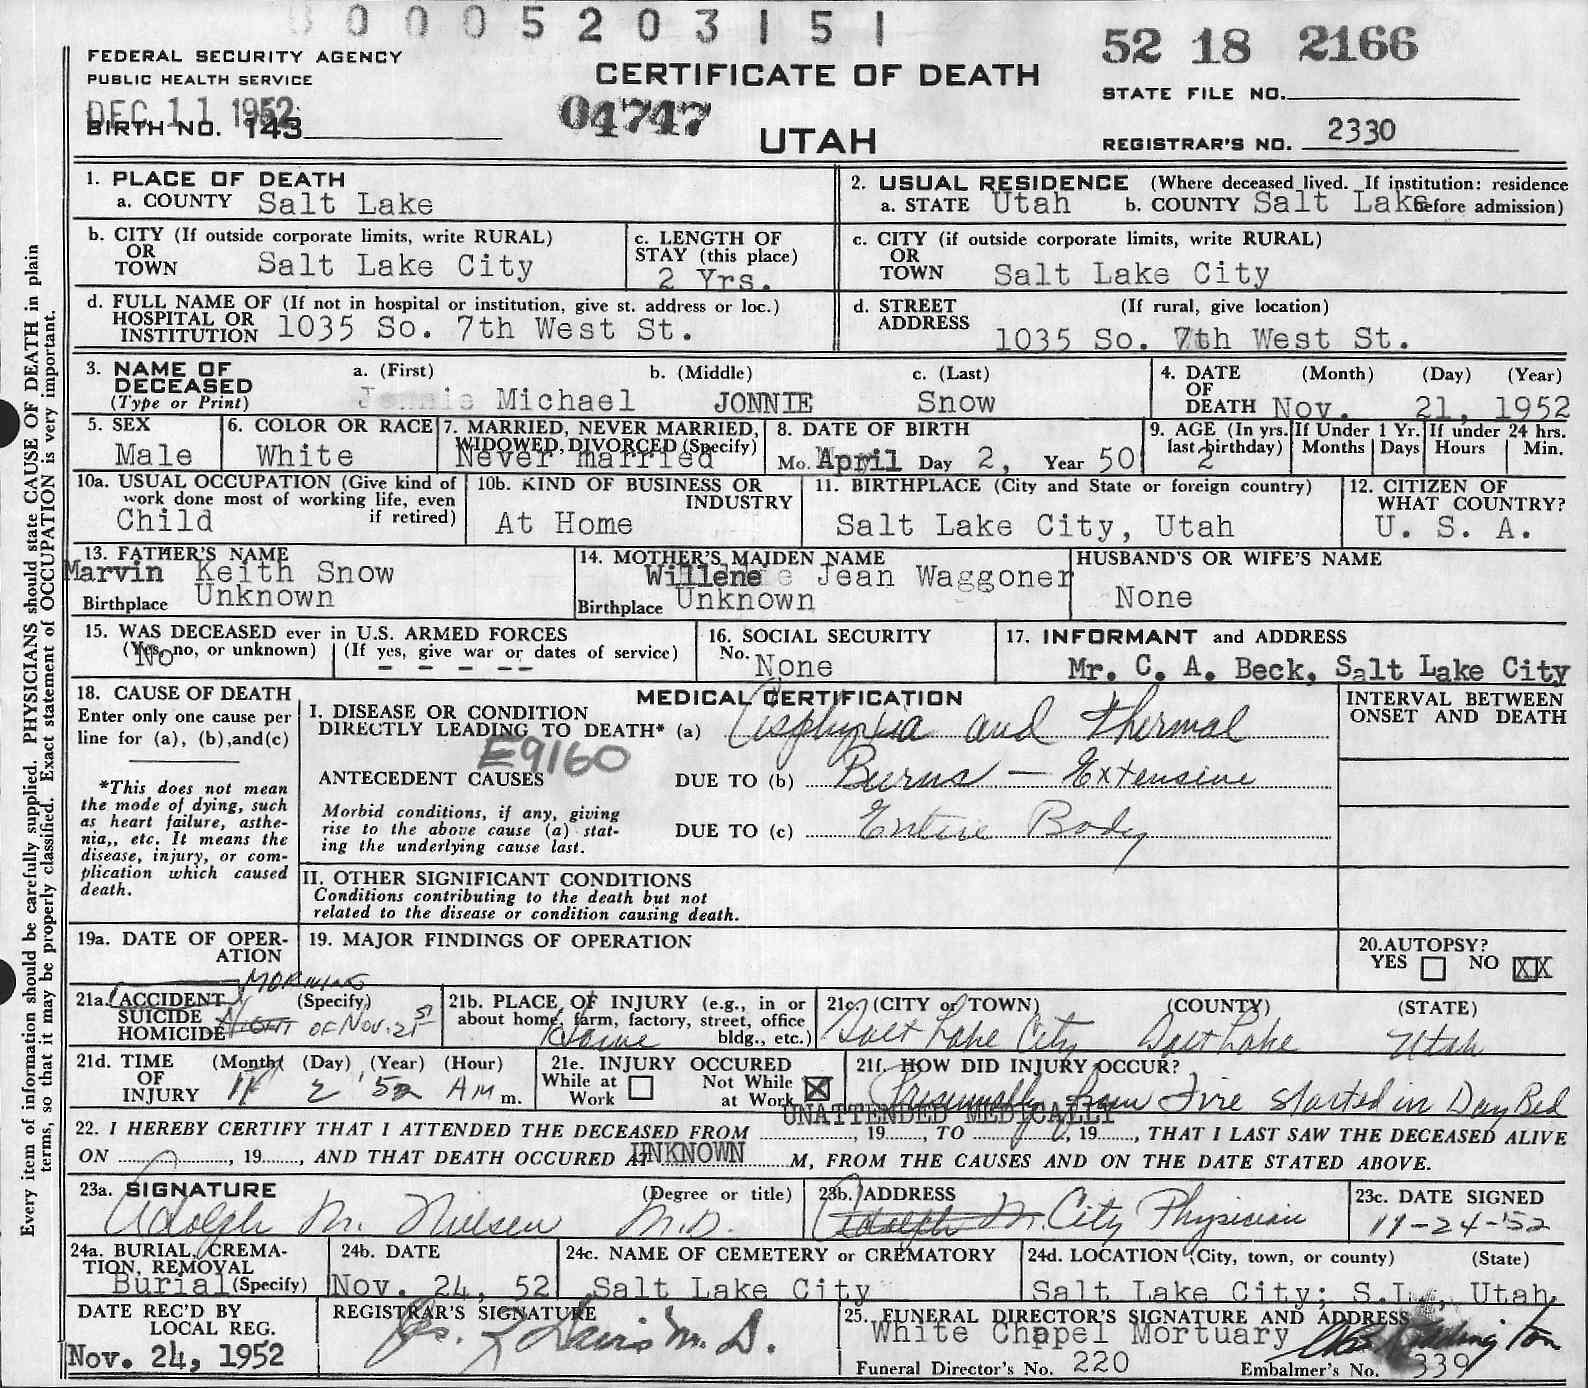 0 0 0 5 2 0 3 1 5 1
52 18 2166
FEDERAL SECURITY AGENCY
PUBLIC HEALTH SERVICE
CERTIFICATE OF DEATH
STATE FILE NO.
DEC 11 1952
BIRTH NO. 143
04747
UTAH
REGISTRAR'S NO. 2330
1. PLACE OF DEATH
a. COUNTY Salt Lake
2. USUAL RESIDENCE (Where deceased lived. If institution: residence
a. STATE Utah b. COUNTY Salt Lake before admission)
b. CITY (If outside corporate limits, write RURAL)
OR
TOWN Salt Lake City
c. LENGTH OF
STAY (this place)
2 Yrs.
c. CITY (if outside corporate limits, write RURAL)
OR
TOWN Salt Lake City
d. FULL NAME OF (If not in hospital or institution, give st. address or loc.)
HOSPITAL OR
INSTITUTION 1035 So. 7th West St.
d. STREET (If rural, give location)
ADDRESS
1035 So. 7th West St.
3. NAME OF a. (First) b. (Middle) c. (Last)
DECEASED
(Type or Print) Michael JONNIE Snow
4. DATE (Month) (Day) (Year)
OF
DEATH Nov. 21, 1952
5. SEX
Male
6. COLOR OR RACE
White
7. MARRIED, NEVER MARRIED,
WIDOWED, DIVORCED (Specify)
Never married
8. DATE OF BIRTH
Mo. April Day 2, Year 50
9. AGE (In yrs. last birthday)
2
If Under 1 Yr.
Months Days
If under 24 hrs.
Hours Min.
10a. USUAL OCCUPATION (Give kind of
work done most of working life, even
if retired)
Child
10b. KIND OF BUSINESS OR
INDUSTRY
At Home
11. BIRTHPLACE (City and State or foreign country)
Salt Lake City, Utah
12. CITIZEN OF
WHAT COUNTRY?
U. S. A.
13. FATHER'S NAME
Marvin Keith Snow
Birthplace Unknown
14. MOTHER'S MAIDEN NAME
Willene Jean Waggoner
Birthplace Unknown
HUSBAND'S OR WIFE'S NAME
None
15. WAS DECEASED ever in U.S. ARMED FORCES
(Yes, no, or unknown) (If yes, give war or dates of service)
No - - - --
16. SOCIAL SECURITY
No. None
17. INFORMANT and ADDRESS
Mr. C. A. Beck, Salt Lake City
18. CAUSE OF DEATH
Enter only one cause per
line for (a), (b), and (c)
*This does not mean
the mode of dying, such
as heart failure, asthe-
nia,, etc. It means the
disease, injury, or com-
plication which caused
death.
MEDICAL CERTIFICATION
I. DISEASE OR CONDITION
DIRECTLY LEADING TO DEATH* (a) Asphyxia and Thermal
E9160
ANTECEDENT CAUSES DUE TO (b) Burns — Extensive
Morbid conditions, if any, giving
rise to the above cause (a) stat-
ing the underlying cause last.
DUE TO (c) Entire Body
INTERVAL BETWEEN
ONSET AND DEATH
II. OTHER SIGNIFICANT CONDITIONS
Conditions contributing to the death but not
related to the disease or condition causing death.
19a. DATE OF OPER-
ATION
19. MAJOR FINDINGS OF OPERATION
20. AUTOPSY?
YES NO XX
MORNING
21a. ACCIDENT (Specify)
SUICIDE
HOMICIDE NIGHT OF NOV. 21st
21b. PLACE OF INJURY (e.g., in or
about home, farm, factory, street, office
bldg., etc.)
Home
21c. (CITY or TOWN) (COUNTY) (STATE)
Salt Lake City Salt Lake Utah
21d. TIME (Month) (Day) (Year) (Hour)
OF
INJURY 11 2 '52 AM m.
21e. INJURY OCCURED
While at Work Not While at Work X
21f. HOW DID INJURY OCCUR?
Presumably from Fire started in Day Bed
UNATTENDED MEDICALLY
22. I HEREBY CERTIFY THAT I ATTENDED THE DECEASED FROM ........, 19......, TO ........, 19......, THAT I LAST SAW THE DECEASED ALIVE
ON ........, 19......, AND THAT DEATH OCCURED AT UNKNOWN M, FROM THE CAUSES AND ON THE DATE STATED ABOVE.
23a. SIGNATURE (Degree or title)
Adolph M. Nielsen M.D.
23b. ADDRESS
Adolph M. City Physician
23c. DATE SIGNED
11-24-'52
24a. BURIAL, CREMA-
TION, REMOVAL
Burial (Specify)
24b. DATE
Nov. 24, 52
24c. NAME OF CEMETERY or CREMATORY
Salt Lake City
24d. LOCATION (City, town, or county) (State)
Salt Lake City; S.L., Utah
DATE REC'D BY
LOCAL REG.
Nov. 24, 1952
REGISTRAR'S SIGNATURE
M. D.
25. FUNERAL DIRECTOR'S SIGNATURE AND ADDRESS
White Chapel Mortuary
Funeral Director's No. 220 Embalmer's No. 339
Every item of information should be carefully supplied. PHYSICIANS should state CAUSE OF DEATH in plain
terms, so that it may be properly classified. Exact statement of OCCUPATION is very important.